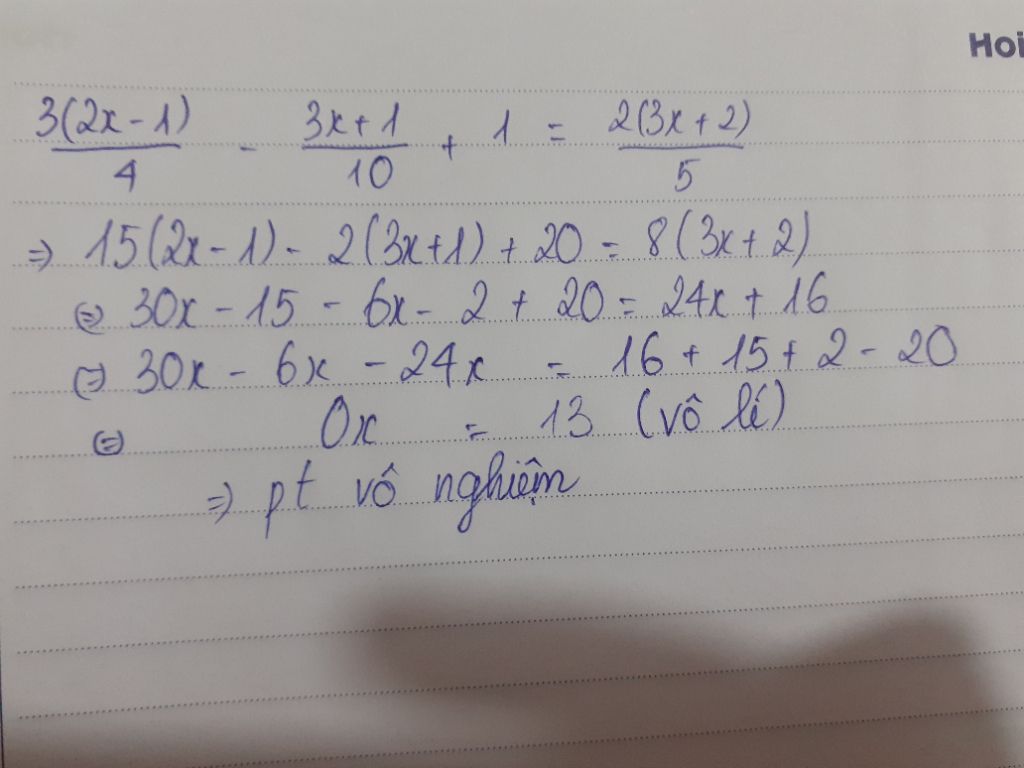 Hoi
3(2x-1)/4 - 3x+1/10 + 1 = 2(3x+2)/5
=> 15(2x-1) - 2(3x+1) + 20 = 8(3x+2)
(=) 30x - 15 - 6x - 2 + 20 = 24x + 16
(=) 30x - 6x - 24x = 16 + 15 + 2 - 20
(=) 0x = 13 (vô lí)
=> pt vô nghiệm